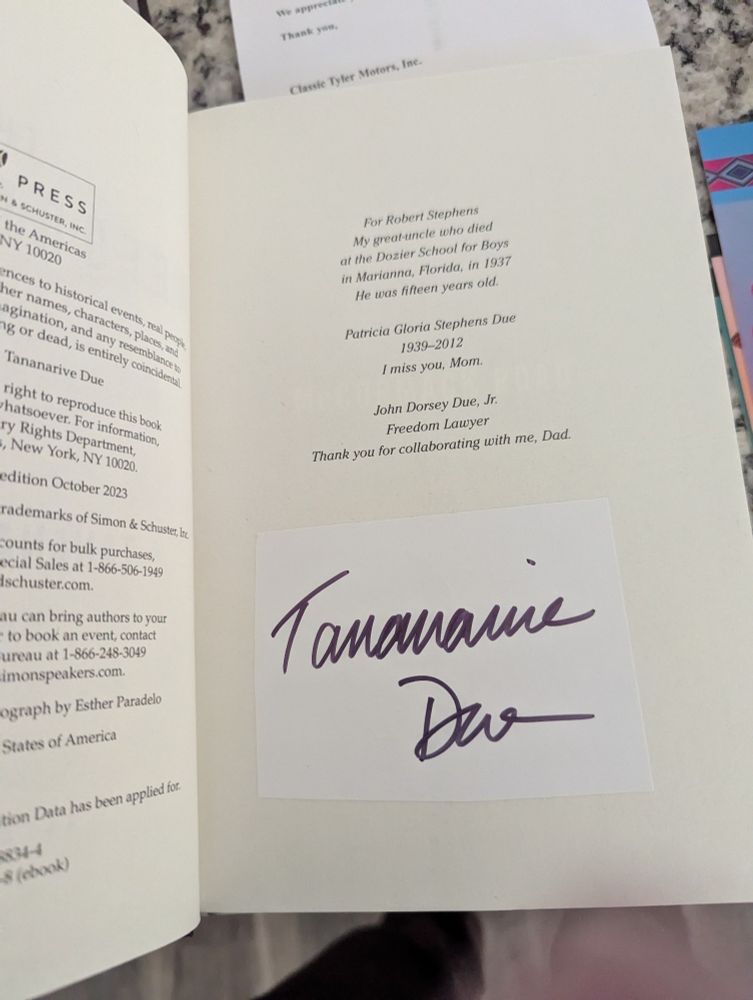 We appreciate
Thank you,
Classic Tyler Motors, Inc.
PRESS
& SCHUSTER, INC.
the Americas
NY 10020
ences to historical events, real people,
her names, characters, places, and
agination, and any resemblance to
ng or dead, is entirely coincidental.
Tananarive Due
right to reproduce this book
whatsoever. For information,
ry Rights Department,
, New York, NY 10020.
edition October 2023
rademarks of Simon & Schuster, Inc.
counts for bulk purchases,
ecial Sales at 1-866-506-1949
dschuster.com.
au can bring authors to your
to book an event, contact
ureau at 1-866-248-3049
simonspeakers.com.
ograph by Esther Paradelo
States of America
tion Data has been applied for.
8834-4
-8 (ebook)
For Robert Stephens
My great-uncle who died
at the Dozier School for Boys
in Marianna, Florida, in 1937
He was fifteen years old.
Patricia Gloria Stephens Due
1939–2012
I miss you, Mom.
John Dorsey Due, Jr.
Freedom Lawyer
Thank you for collaborating with me, Dad.
Tananarive
Due